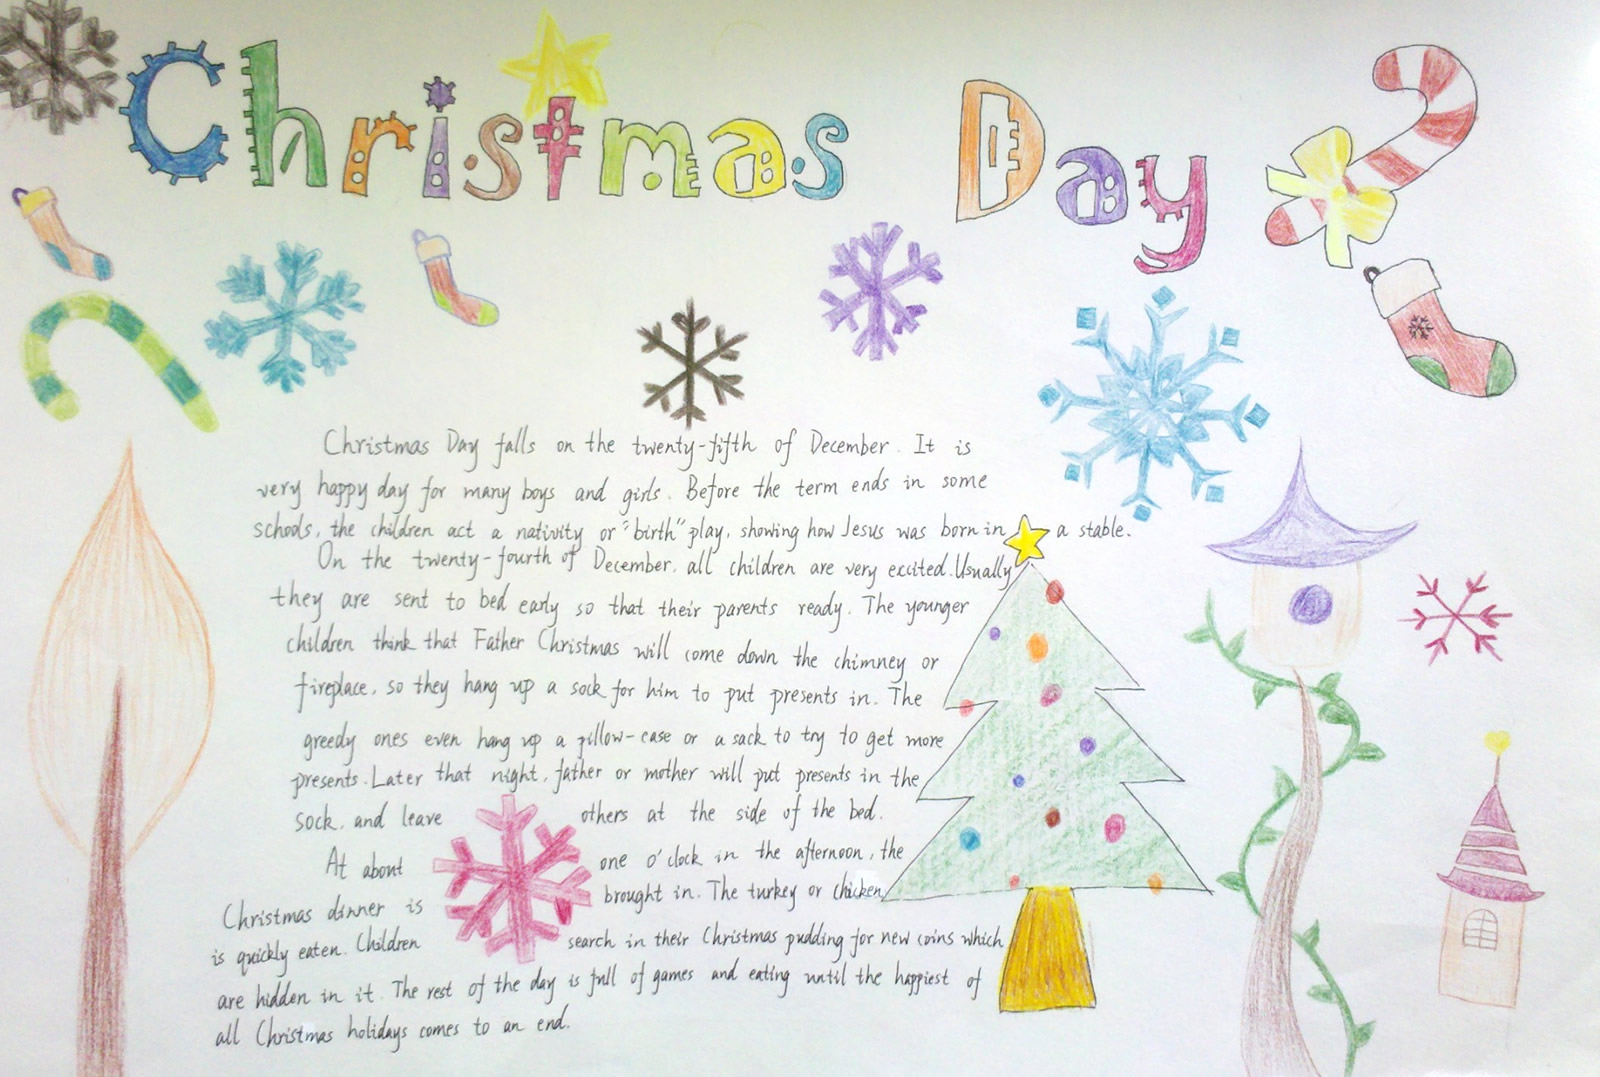 Christmas Day
Christmas Day falls on the twenty-fifth of December. It is
very happy day for many boys and girls. Before the term ends in some
schools, the children act a nativity or "birth" play, showing how Jesus was born in a stable.
On the twenty-fourth of December, all children are very excited. Usually
they are sent to bed early so that their parents ready. The younger
children think that Father Christmas will come down the chimney or
fireplace, so they hang up a sock for him to put presents in. The
greedy ones even hang up a pillow-case or a sack to try to get more
presents. Later that night, father or mother will put presents in the
sock, and leave others at the side of the bed.
At about one o'clock in the afternoon, the
Christmas dinner is brought in. The turkey or chicken
is quickly eaten. Children search in their Christmas pudding for new coins which
are hidden in it. The rest of the day is full of games and eating until the happiest of
all Christmas holidays comes to an end.